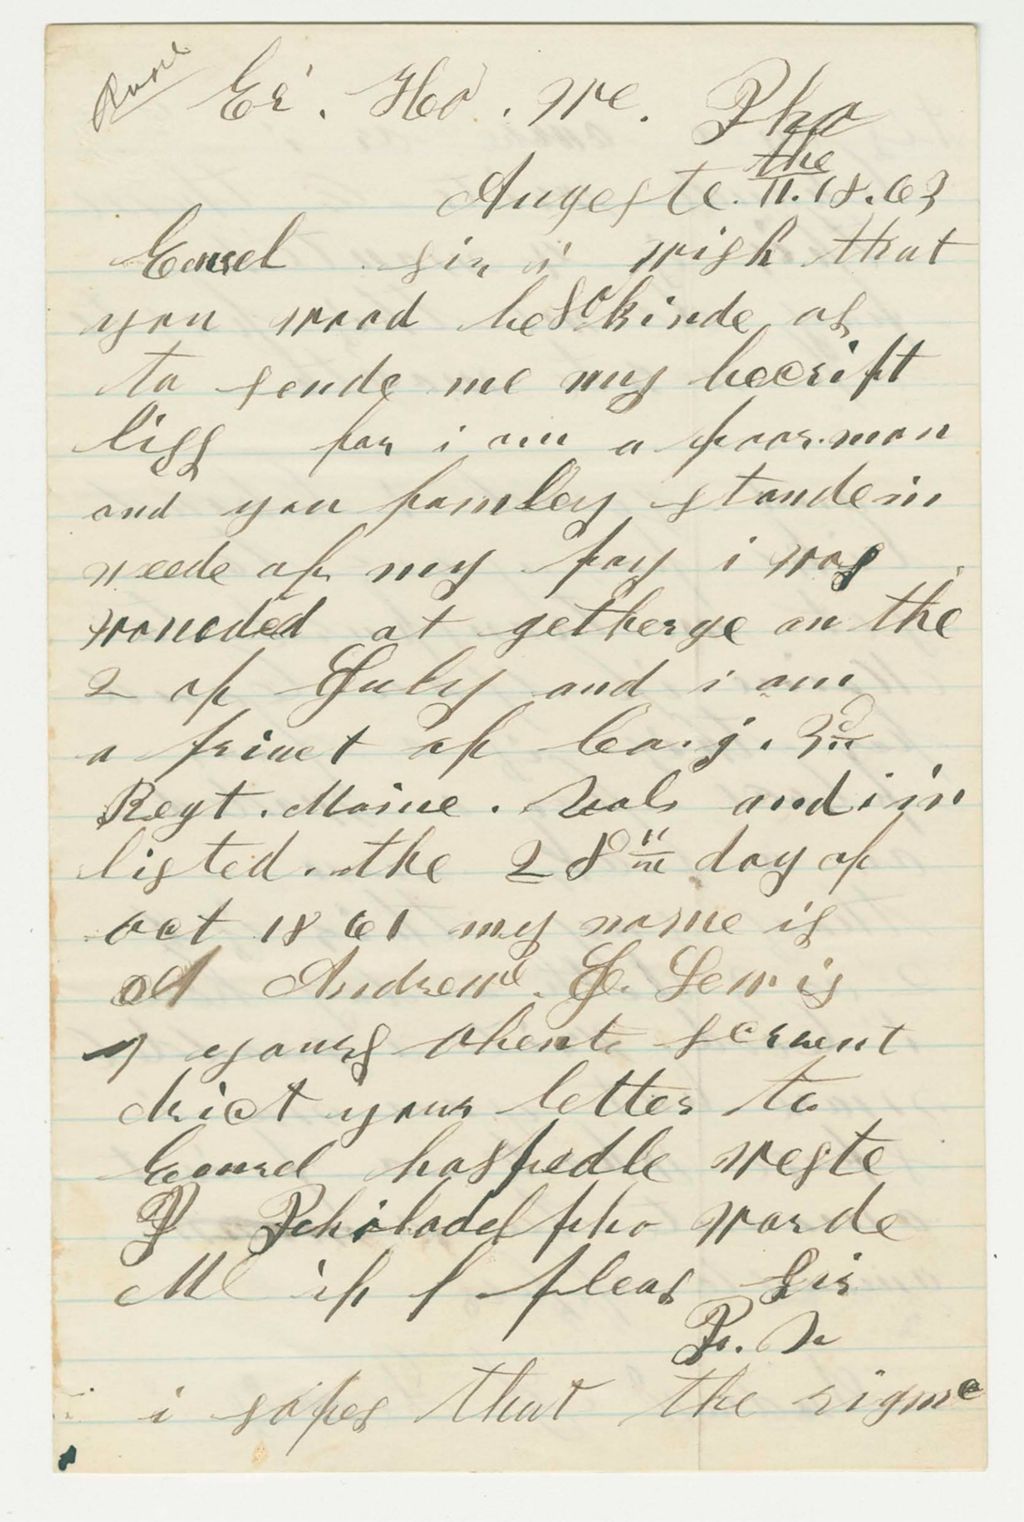 Ge'. Ho. We. Pha
Augeste. the 11. 18.63
Genrel sir i wish that
you wood be so kinde as
to sende me my decrift
liss for i am a poor man
and you famley stande in
neede of my pay i was
wouded at getberge on the
2 of July and i am
a privet of Co. j. 3rd
Regt. Maine. Vols and i in
listed. the 28th day of
oct 1861 my name is
Andrew. J. Lewis
yours obent servent
drict your letter to
Genrel hospedle weste
Philadelpha warde
M if pleas Sir
P. S
i sopes that the rigme